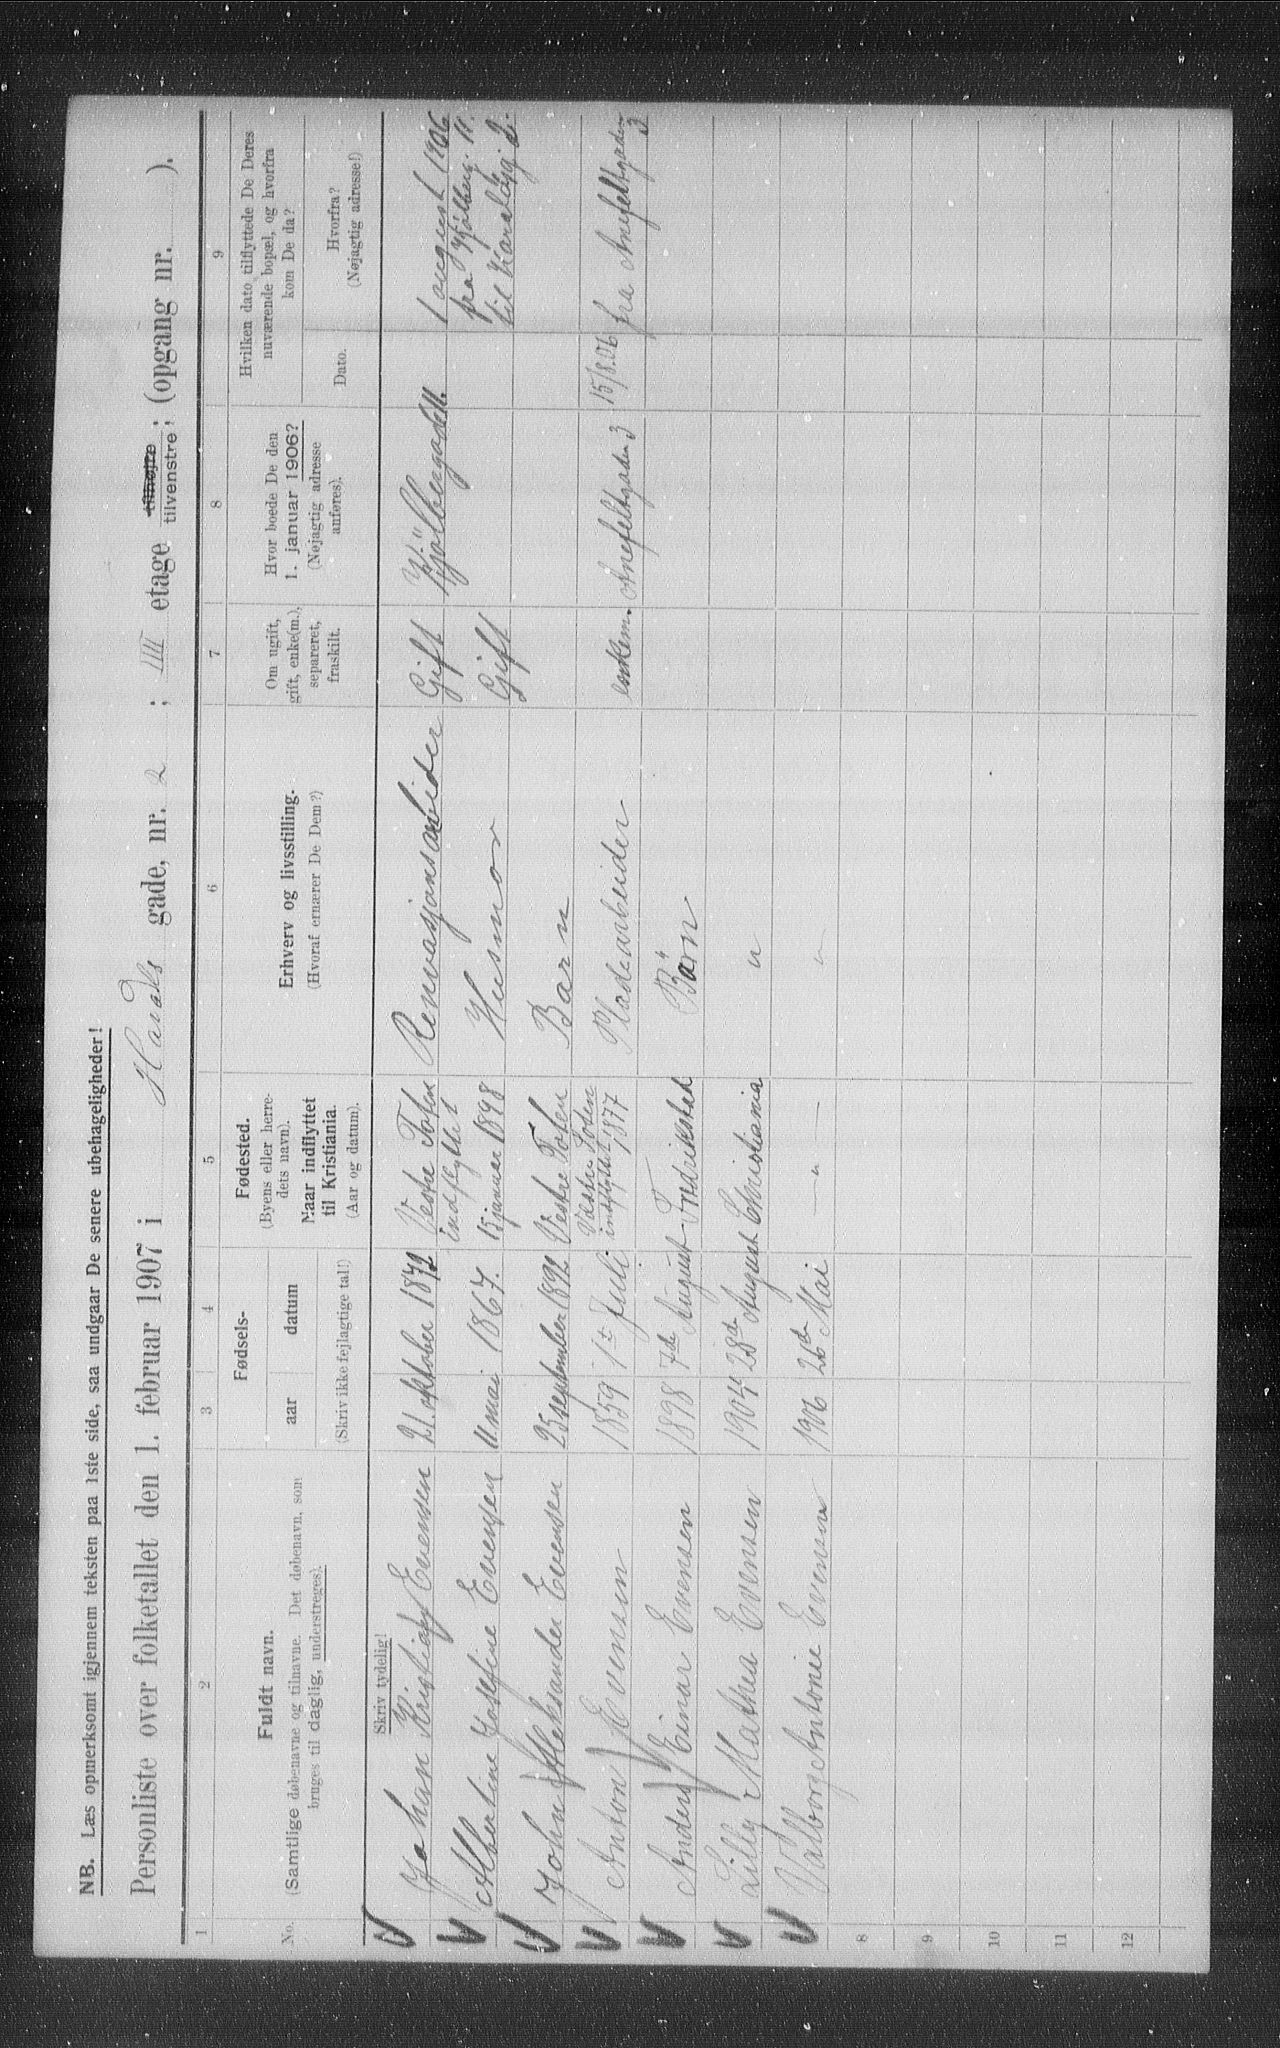 NB. Læs opmerksomt igjennem teksten paa 1ste side, saa undgaar De senere ubehageligheder!
Personliste over folketallet den 1. februar 1907 i Haralds gade, nr. 2 ; IIII etage tilhøjre tilvenstre ; (opgang nr. ).
1 2 3 4 5 6 7 8 9
No.
Fuldt navn.
(Samtlige døbenavne og tilnavne. Det døbenavn, som
bruges til daglig, understreges).
Fødsels-
aar datum
(Skriv ikke fejlagtige tal!)
Fødested.
(Byens eller herre-
dets navn).
Naar indflyttet
til Kristiania.
(Aar og datum).
Erhverv og livsstilling.
(Hvoraf ernærer De Dem?)
Om ugift,
gift, enke(m.),
separeret,
fraskilt.
Hvor boede De den
1. januar 1906?
(Nøjagtig adresse
anføres).
Hvilken dato tilflyttede De Deres
nuværende bopæl, og hvorfra
kom De da?
Dato.
Hvorfra?
(Nøjagtig adresse!)
Skriv tydelig!
Johan Kristian Evensen 21. oktober 1872 Vestre Toten Renovasjonsarbider Gift Kjølberggade 11. 1 august 1906
indflyttet fra Kjølberg. 11.
Albertine Josefine Evensen 11 mai 1867. 15 januar 1898 Husmor Gift til Haraldsg 2.
John Aleksander Evensen 25 september 1892 Vestre Toten Barn
Anton Evensen 1859 1ste Juli Vestre Toten indflyttet 1877 Pladearbeider enkem. Anefeltgaden 3 15/8 06 fra Anefeltgaden 3
Anders Einar Evensen 1898 7de August Fredrikstad Barn
Lilly Mathea Evensen 1904 28de August Christiania "
Valborg Antonie Evensen 1906 26de Mai — " — "
8
9
10
11
12